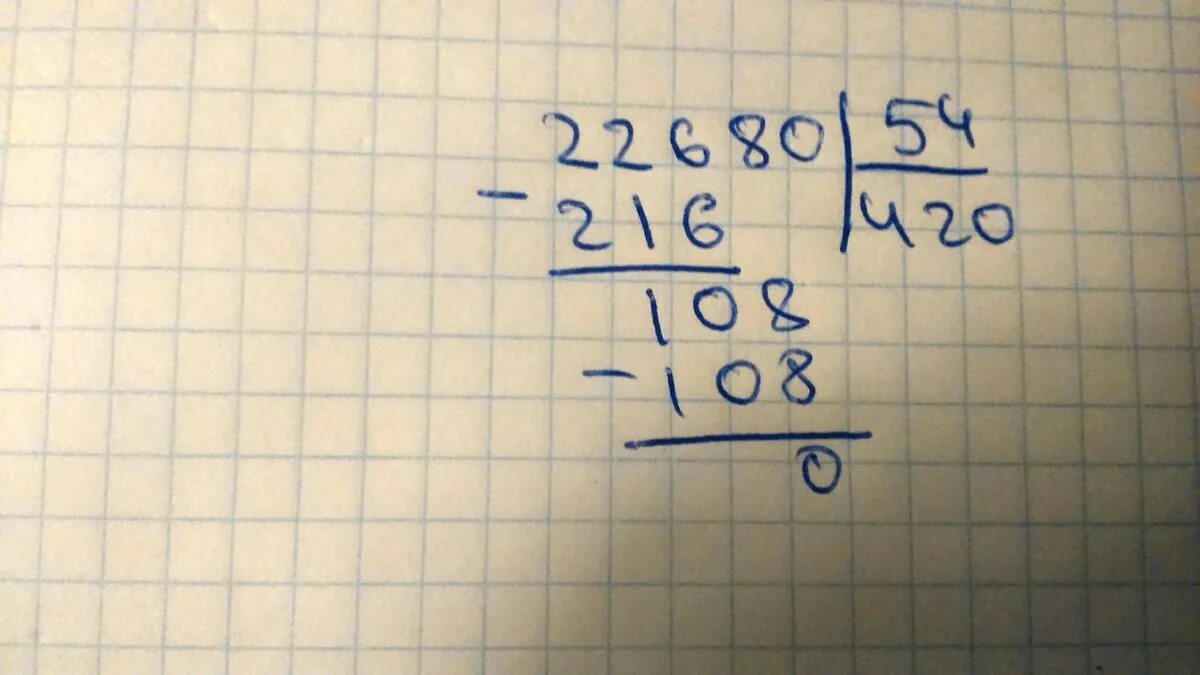 22680 | 54
- 216 | 420
108
- 108
0